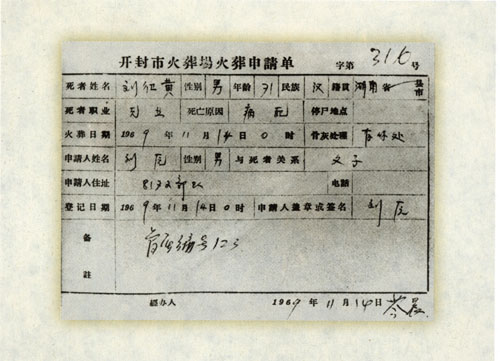 开封市火葬場火葬申請单 字第 号
死者姓名 刘卫黄 性别 男 年齡 71 民族 汉 籍貫 湖南省 县市
死者职业 无业 死亡原因 病死 停尸地点
火葬日期 1969年11月14日0时 骨灰处理 存
申請人姓名 刘原 性别 男 与死者关系 父子
申請人住址 8172部队 電話
登记日期 1969年11月14日0时 申請人盖章或签名 刘原
备註 骨灰编号123
經办人 1969年11月14日